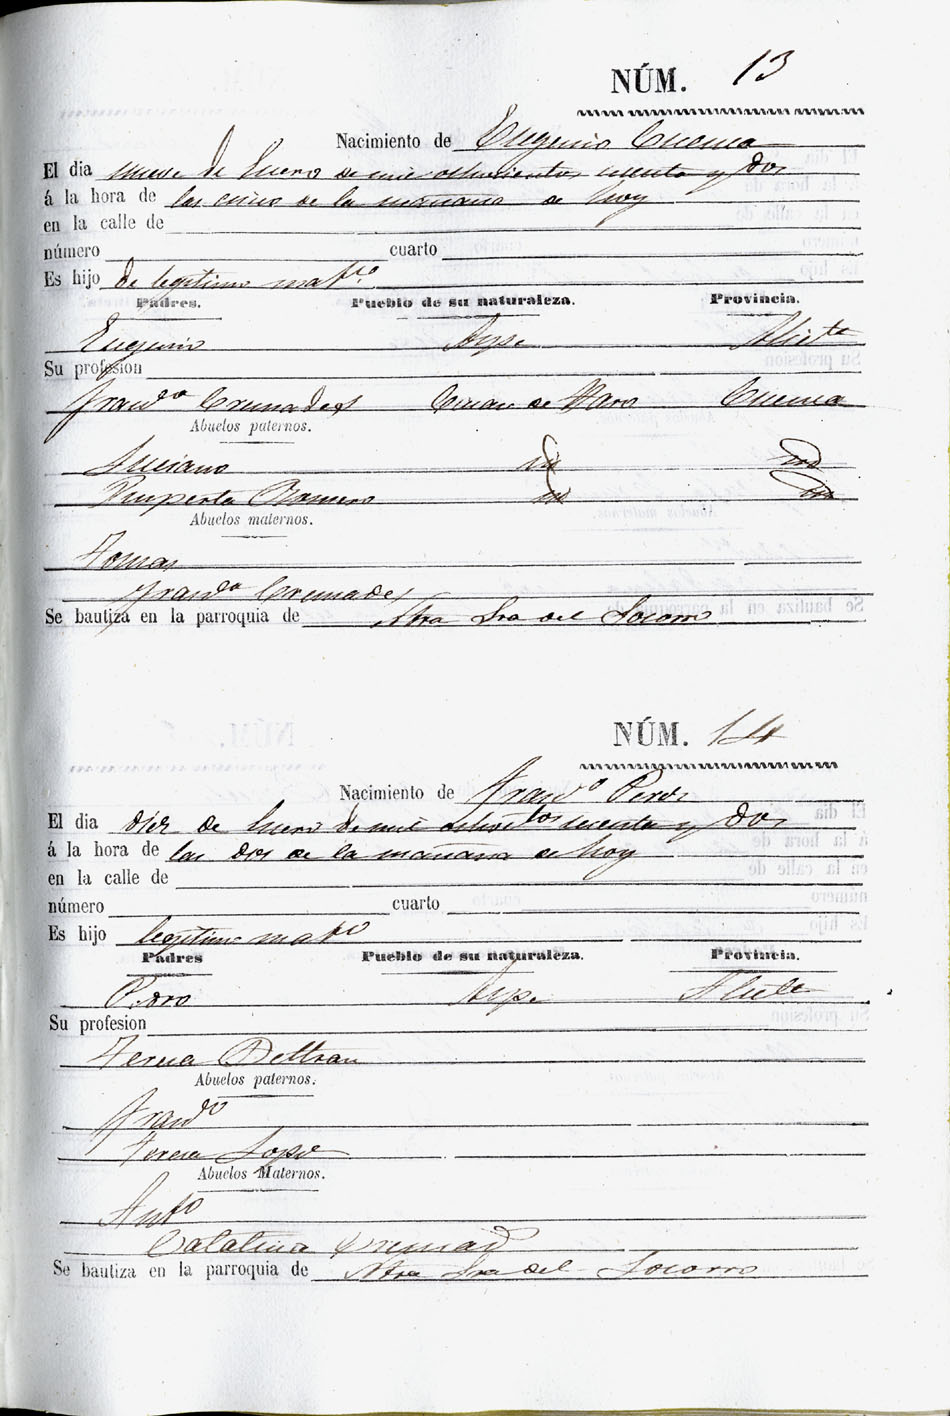 NÚM. 13
Nacimiento de Eugenio Cuenca
El dia nueve de Enero de mil ochocientos setenta y dos
á la hora de las cinco de la mañana de hoy
en la calle de
número cuarto
Es hijo de legitimo mat.º
Padres. Pueblo de su naturaleza. Provincia.
Eugenio Aspe Alicte
Su profesion
Francª Cremades de Haro Cuenca
Abuelos paternos.
Luciano id id
Ruperta Romero id id
Abuelos maternos.
Tomas
Francª Cremades
Se bautiza en la parroquia de Ntra Sra del Socorro
NÚM. 14
Nacimiento de Francº Perez
El dia diez de Enero de mil ochoctos setenta y dos
á la hora de las dos de la mañana de hoy
en la calle de
número cuarto
Es hijo legitimo matº
Padres Pueblo de su naturaleza. Provincia.
Pedro Aspe Alicte
Su profesion
Teresa Beltran
Abuelos paternos.
Francº
Teresa Lopez
Abuelos Maternos.
Antº
Catalina Cremad
Se bautiza en la parroquia de Ntra Sra del Socorro